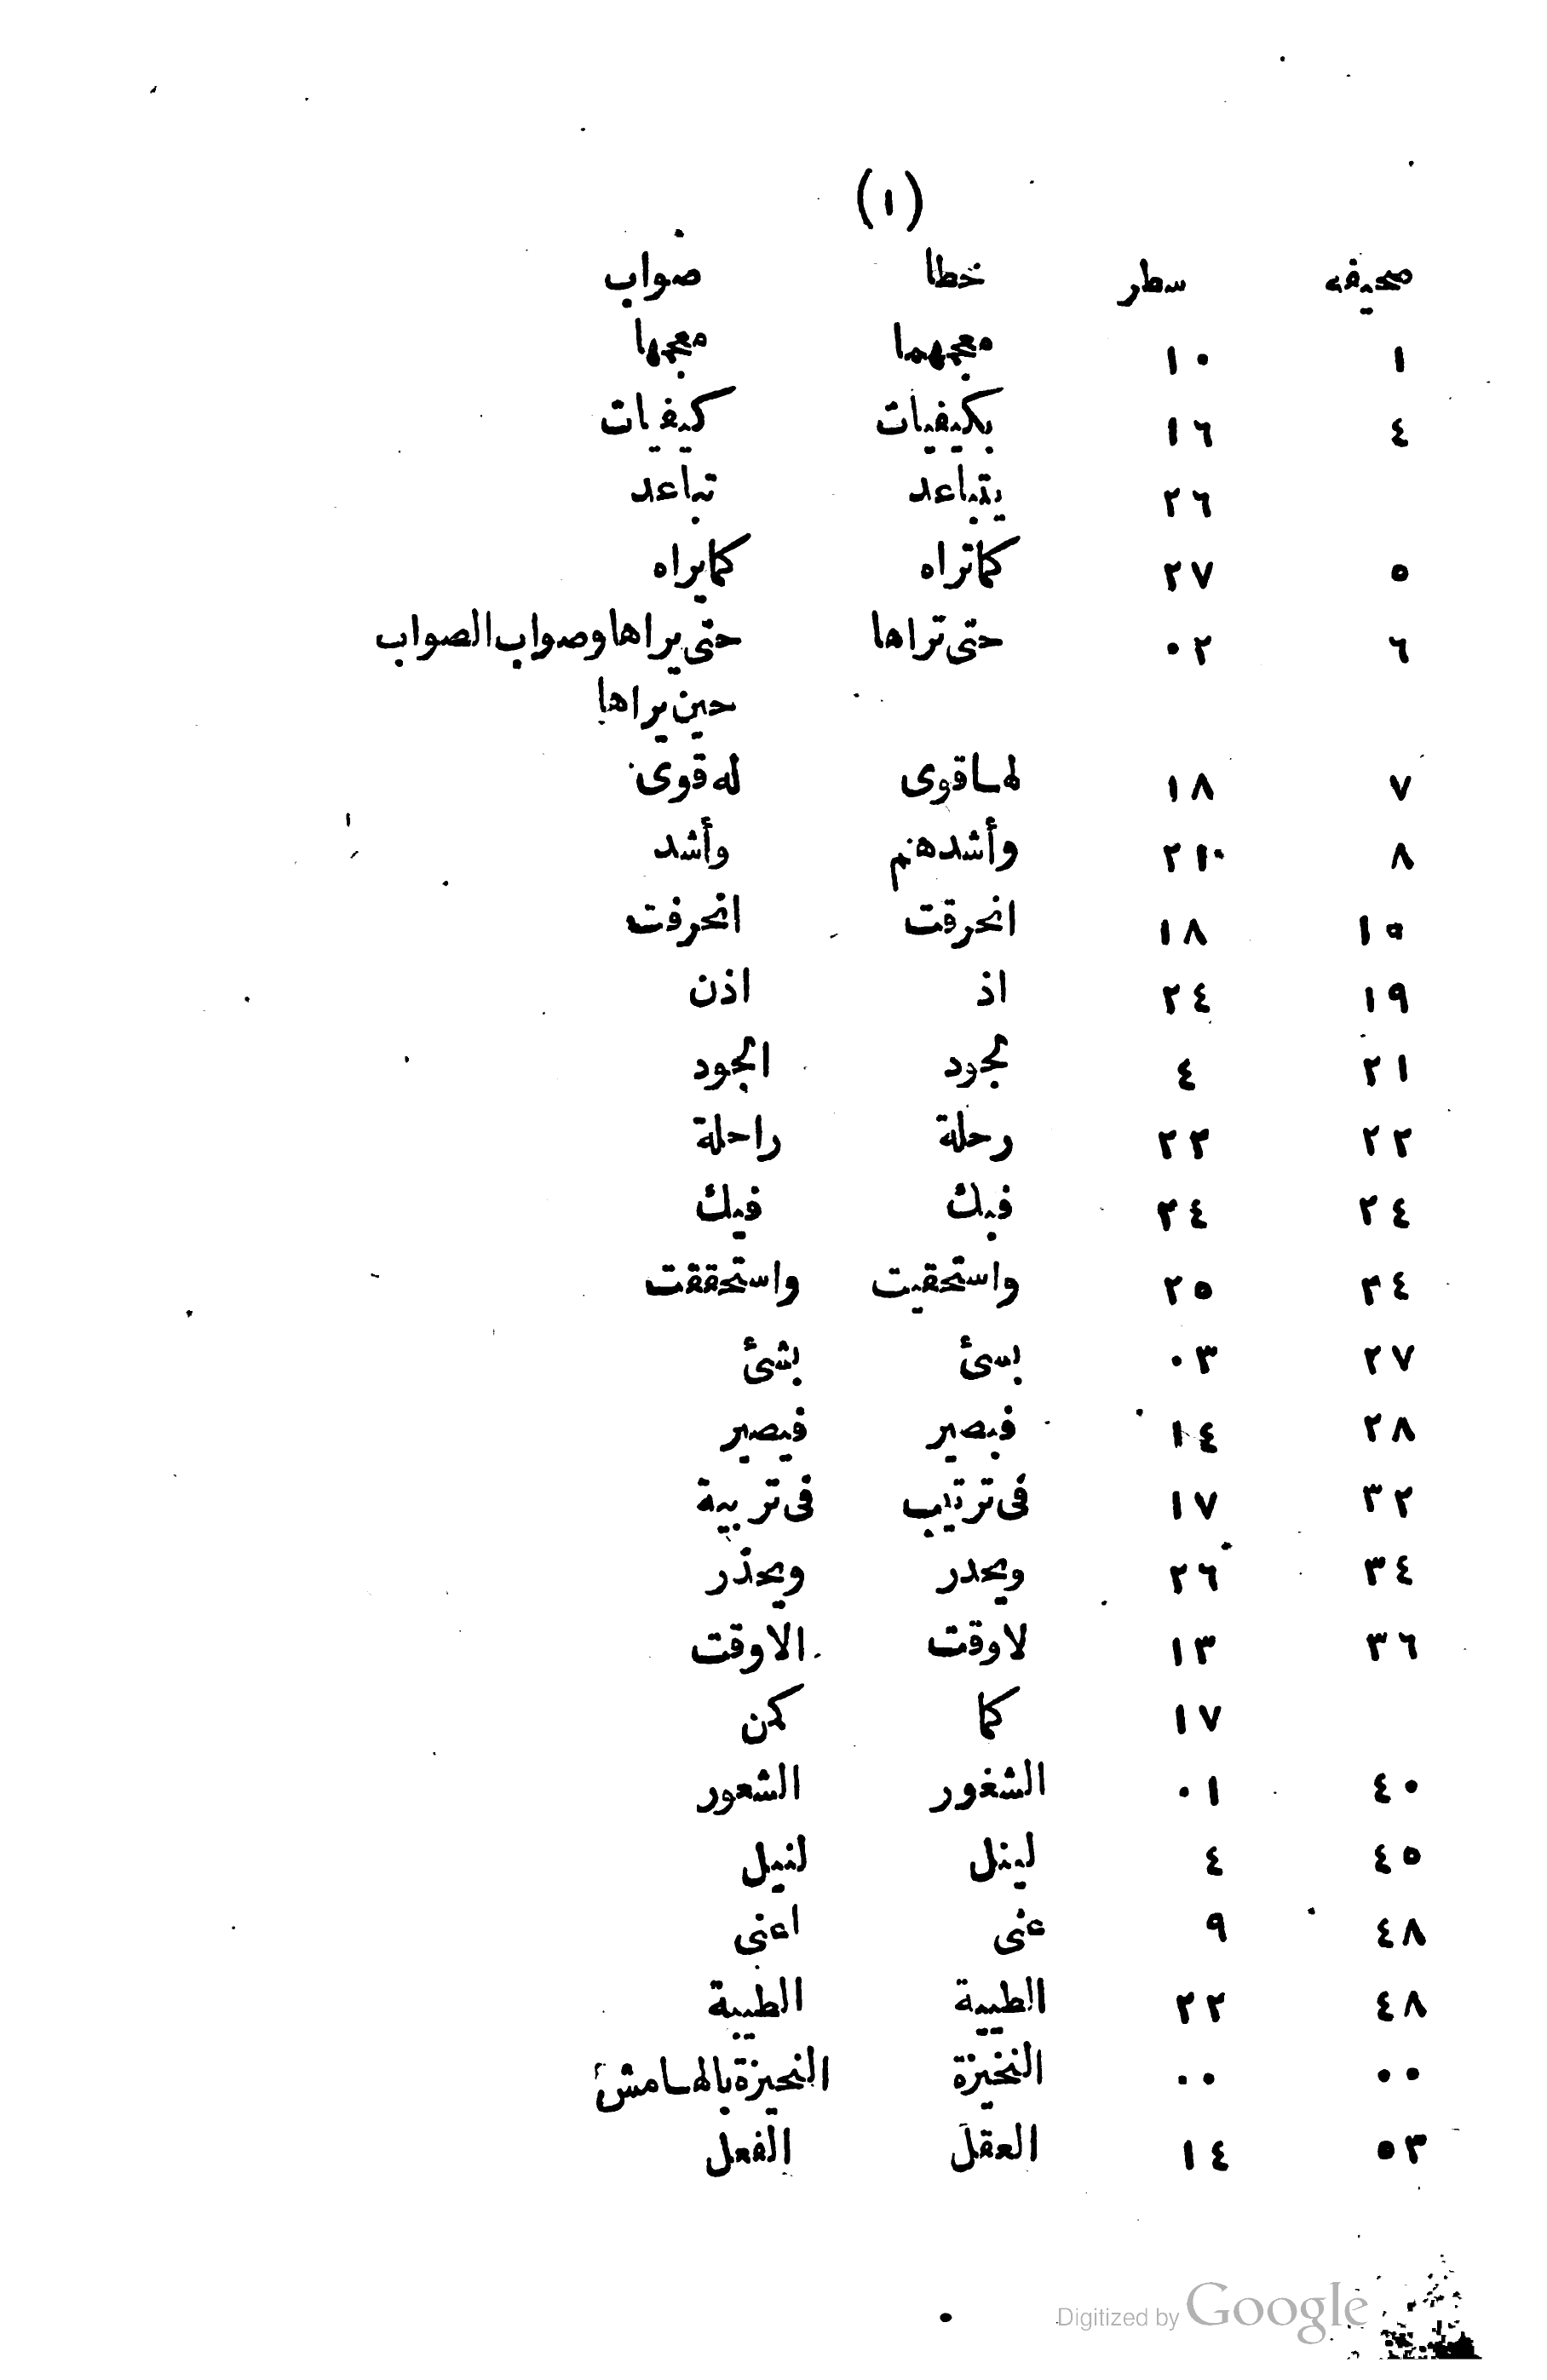 (١)
صحيفه سطر خطا صواب
١ ١٠ معجهما معجها
٤ ١٦ بكيفيات كيفيات
٢٦ يتباعد تباعد
٥ ٢٧ كماتراه كمايراه
٦ ٠٢ حتى تراها حتى يراها وصواب الصواب
حين يراها
٧ ١٨ لها قوى له قوى
٨ ٢١ وأشدهم وأشد
١٥ ١٨ انحرقت انحرفت
١٩ ٢٤ اذ اذن
٢١ ٤ لجود الجود
٢٢ ٢٣ رحلة راحلة
٢٤ ٢٤ فبك فيك
٢٤ ٢٥ واستحقيت واستحققت
٢٧ ٠٣ بسئ بشئ
٢٨ ١٤ فبصير فيصير
٣٢ ١٧ فى ترتيب فى تربية
٣٤ ٢٦ ويحدر ويحذر
٣٦ ١٣ لاوقت الاوقت
١٧ كما كمن
٤٠ ٠١ الشغور الشعور
٤٥ ٤ لينل لنيل
٤٨ ٩ عنى اعنى
٤٨ ٢٢ الطيية الطيبة
٠٠ ٠٠ النخيزة النحيزة بالهامش
٥٣ ١٤ العقل الفعل
Digitized by Google